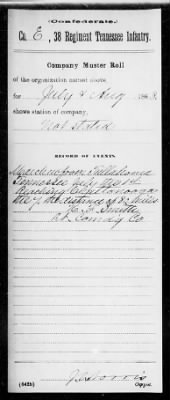 (Confederate.)
Co. E, 38 Regiment Tennessee Infantry.
Company Muster Roll
of the organization named above,
for July & Aug, 1863.
shows station of company,
Not stated
RECORD OF EVENTS.
Marched from Tullahoma
Tennessee July the 1st
Reaching Chattanooga
the 7 the distance of 82 Miles
Smith
Lt. Comdg Co
(642b)
Copyist.